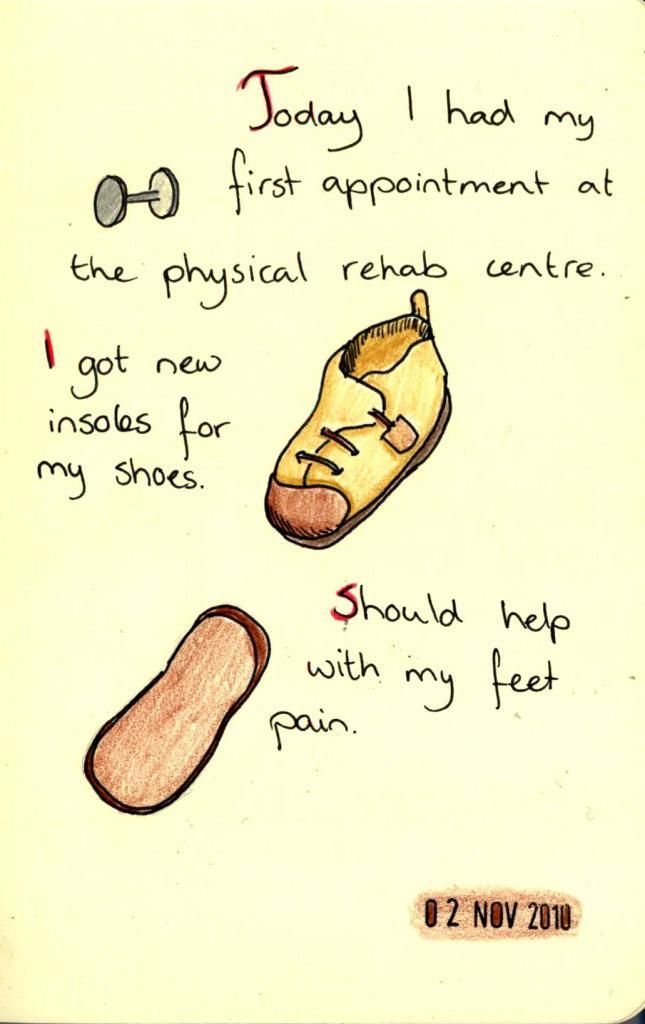 Today I had my
first appointment at
the physical rehab centre.
I got new
insoles for
my shoes.
Should help
with my feet
pain.
02 NOV 2010